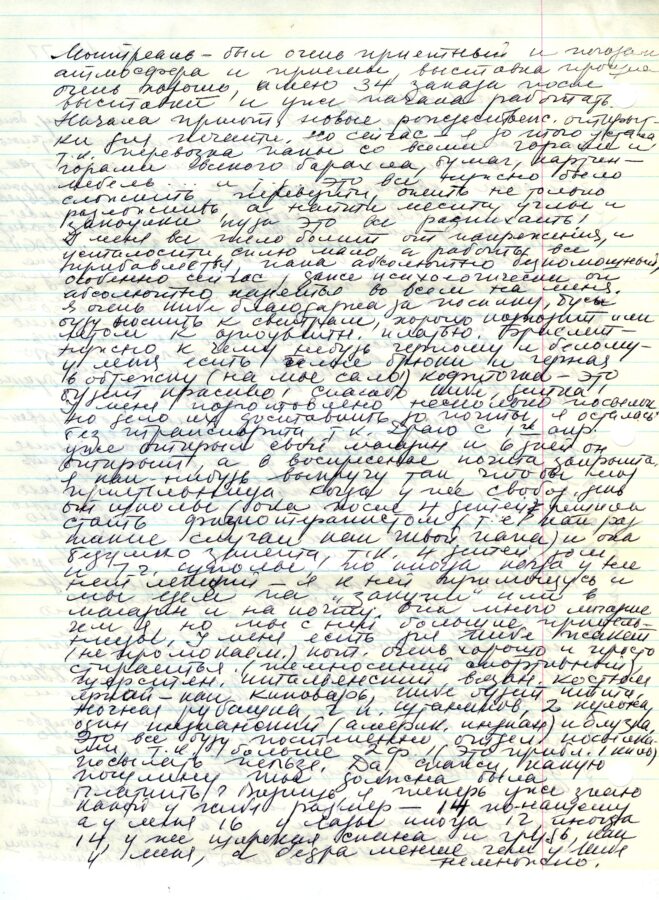 Монтреаль – был очень приятный и
атмосфера и приемы выставка прошла
очень хорошо, имею 34 заказа после
выставки и уже начала работать.
Начала новые рождественс. открыт-
ки для печати. Но сейчас – я до того устала
т.к. перевозка папы со всеми горами и
горами всякого барахла, бумаг, картин –
мебель ... и, это все нужно было
сложить, перевезти, опять не только
разложить, а найти места углы и
закоулки, куда это все распихать!
У меня все тело болит от напряжения, и
усталости сплю мало, а работы все
прибавляется, папа абсолютно беспомощный,
особенно сейчас даже психологически он
абсолютно во всем на меня.
Я очень тебе благодарна за посылку, бусы
буду носить к свитрам, хорошо подходит или
летом к платью. Браслет –
нужно к чему нибудь черному и белому –
у меня есть белые брюки и черная
в обтяжку (на мое сало) кофточка – это
будет красиво! Спасибо тебе детка!
У меня подготовлено несколько посылок
но дело их доставить до почты я осталась
без транспорта т.к. с 1 апр.
уже открыл свой магазин и 6 дней он
открыт, а в воскресенье почта закрыта.
Я как-нибудь выкручу так чтобы моя
приятельница когда у нее свобод. день
от школы (она после 4 детей решила
стать физиотерапистом (т.е. как раз
такие случаи как твой папа) и она
безумно занята, т.к. 4 детей дом
и 7 г. школы, но иногда когда у нее
нет лекций – я к ней примощусь и
мы едем на „закупки" или в
магазин и на почту. Она много младше
чем я, но мы с ней большие приятель-
ницы. У меня есть для тебя жакет
(не промокаем.) кот. очень хорошо и просто
стирается. (темносиний спортивный)
шерстян. итальянский вязан. костюм
яркий – как киноварь, тебе будет
ночная рубашка и п. штаников, 2
один индианский (америк. индиан) и блузка.
Это все буду постепенно отдел. посылка-
ми, т.к. больше 2 ф. (это прибл. 1 кило)
посылать нельзя. Да, скажи, какую
пошлину ты должна была
платить? я теперь уже знаю
какой у тебя размер – 14 по-нашему
а у меня 16 у Лары иногда 12 иногда
14, у нее широкая спина и грудь, как
у меня, а бедра меньше чем у тебя
немножко.